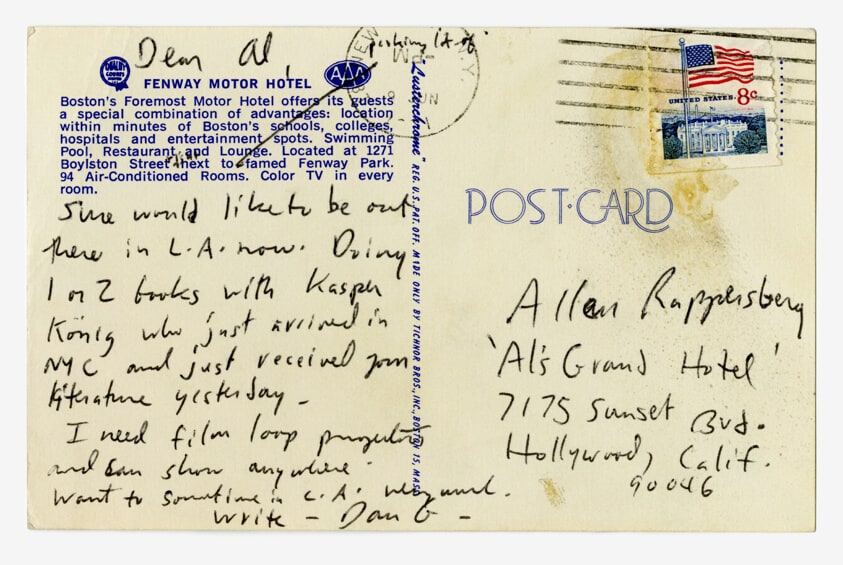 Dear Al,
parking lot of
QUALITY COURTS MOTELS
AAA
FENWAY MOTOR HOTEL
Boston's Foremost Motor Hotel offers its guests
a special combination of advantages: location
within minutes of Boston's schools, colleges,
hospitals and entertainment spots. Swimming
Pool, Restaurant and Lounge. Located at 1271
Boylston Street next to famed Fenway Park.
94 Air-Conditioned Rooms. Color TV in every
room.
Sure would like to be out
there in L.A. now. Doing
1 or 2 books with Kasper
König who just arrived in
NYC and just received your
literature yesterday –
I need film loop projectors
and can show anywhere.
Want to sometime in L.A.
Write – Dan G –
"Lusterchrome" REG. U.S. PAT. OFF. MADE ONLY BY TICHNOR BROS., INC., BOSTON 15, MASS.
NEW
N.Y.
PM
UNITED STATES 8c
POST-CARD
Allen Ruppersberg
'Al's Grand Hotel'
7175 Sunset Bvd.
Hollywood, Calif.
90046